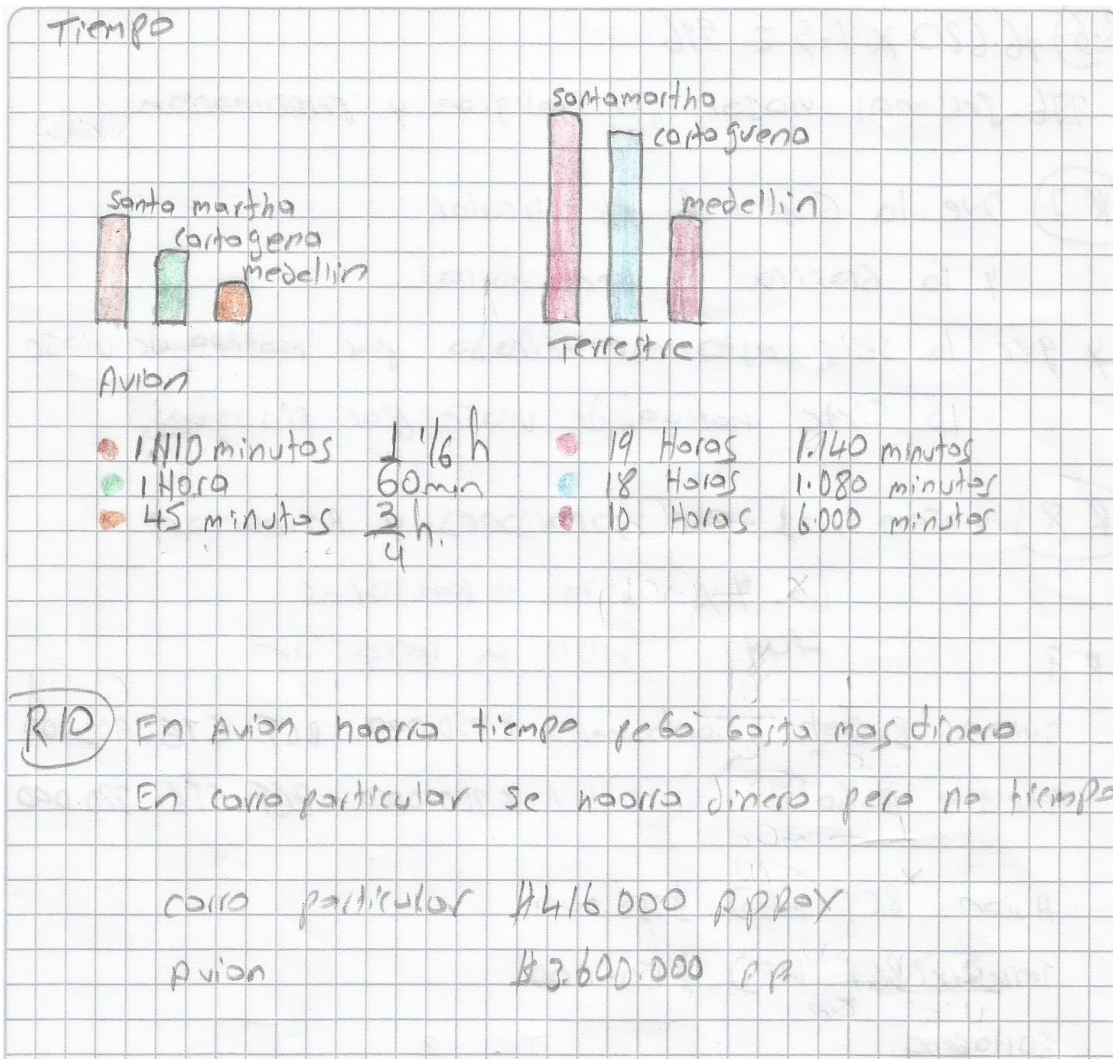 Tiempo
santamartha
cartaguena
santa martha
cartagena
medellin
medellin
Terrestre
Avion
1H10 minutos 1 1/6 h
1 Hora 60 min
45 minutos 3/4 h.
19 Horas 1.140 minutos
18 Horas 1.080 minutos
10 Horas 6.000 minutos
R10 En Avion haorra tiempo pero gasta mas dinero
En carro particular se haorra dinero pero no tiempo
carro particular $416 000 APROX
Avion $3.600.000